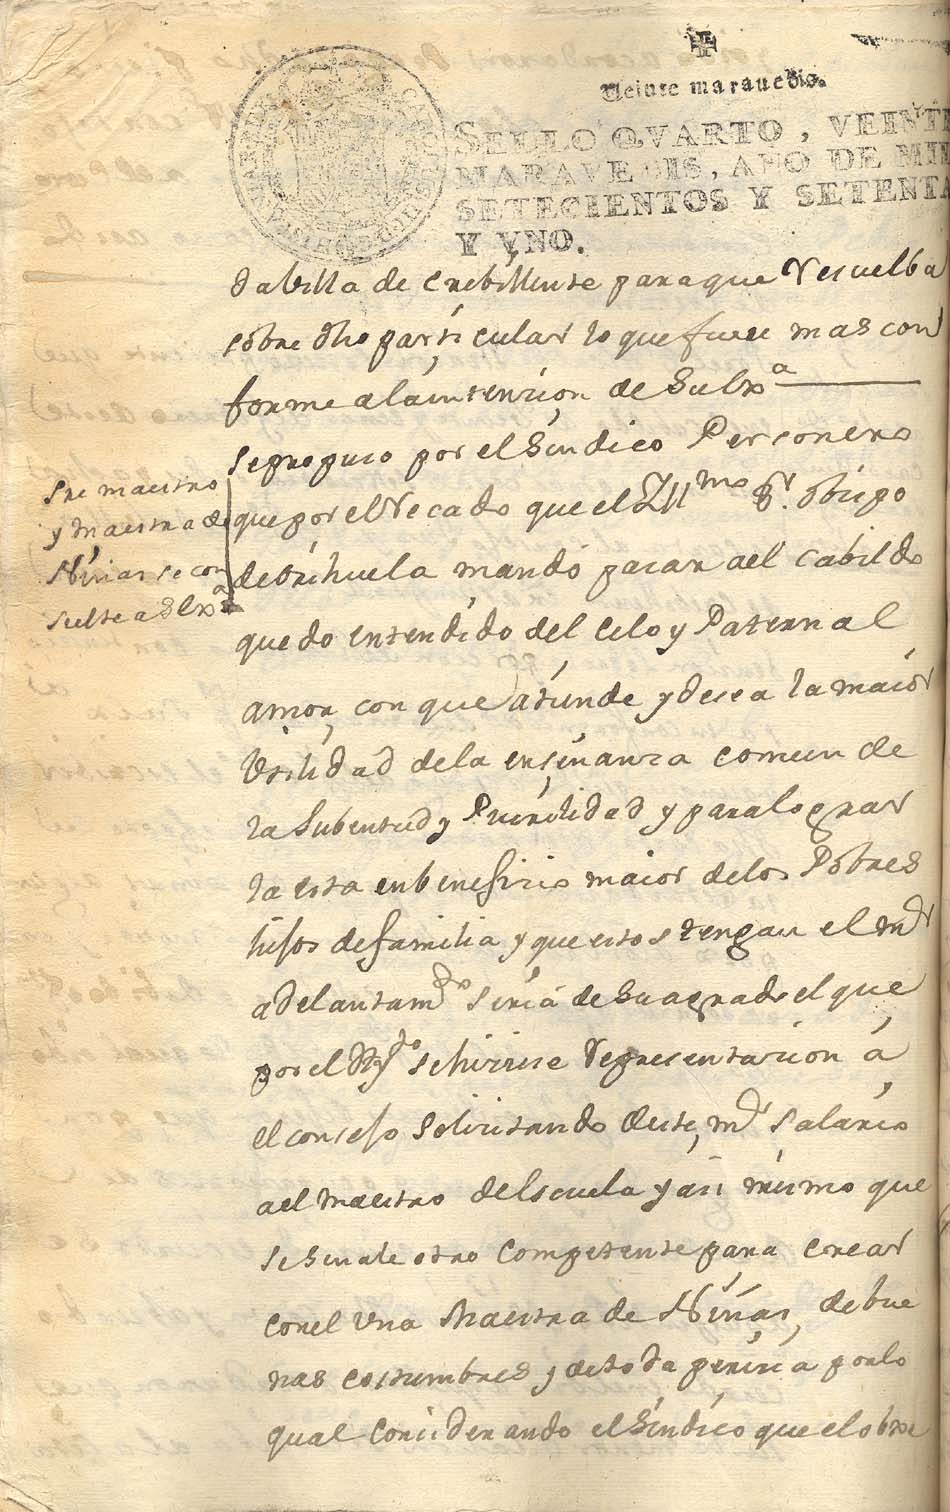 Veinte maravedis.
SELLO QVARTO, VEINTE
MARAVEDIS, AÑO DE MIL
SETECIENTOS Y SETENTA
Y VNO.
da billa de Crebillente para que Resuelba
sobre dho particular lo que fuere mas con
forme a la intencion de Su Exª
Se propuso por el Sindico Personero
que por el Recado que el Yllmo Sr. Obispo
de Orihuela mandó pasar a el Cabildo
quedo entendido del Celo y Paternal
amor, con que atiende y desea la maior
Utilidad de la enseñanza comun de
la Jubentud y Puerilidad y para lograr
la esta en beneficio maior de los Pobres
hijos de familia y que estos tengan el mr
adelantamto seria de Su agrado el que
por el Aymto se hiciese Representacion á
el Consejo Solicitando deste, mr Salario
a el maestro de Escuela y asi mismo que
se Senale otro Competente para crear
con el Una Maestra de Niñas, de bue
nas costumbres y de toda pericia por lo
qual Conciderando el Sindico que el
Sre maestro
y maestra de
Niñas se con
sulte a S Exª